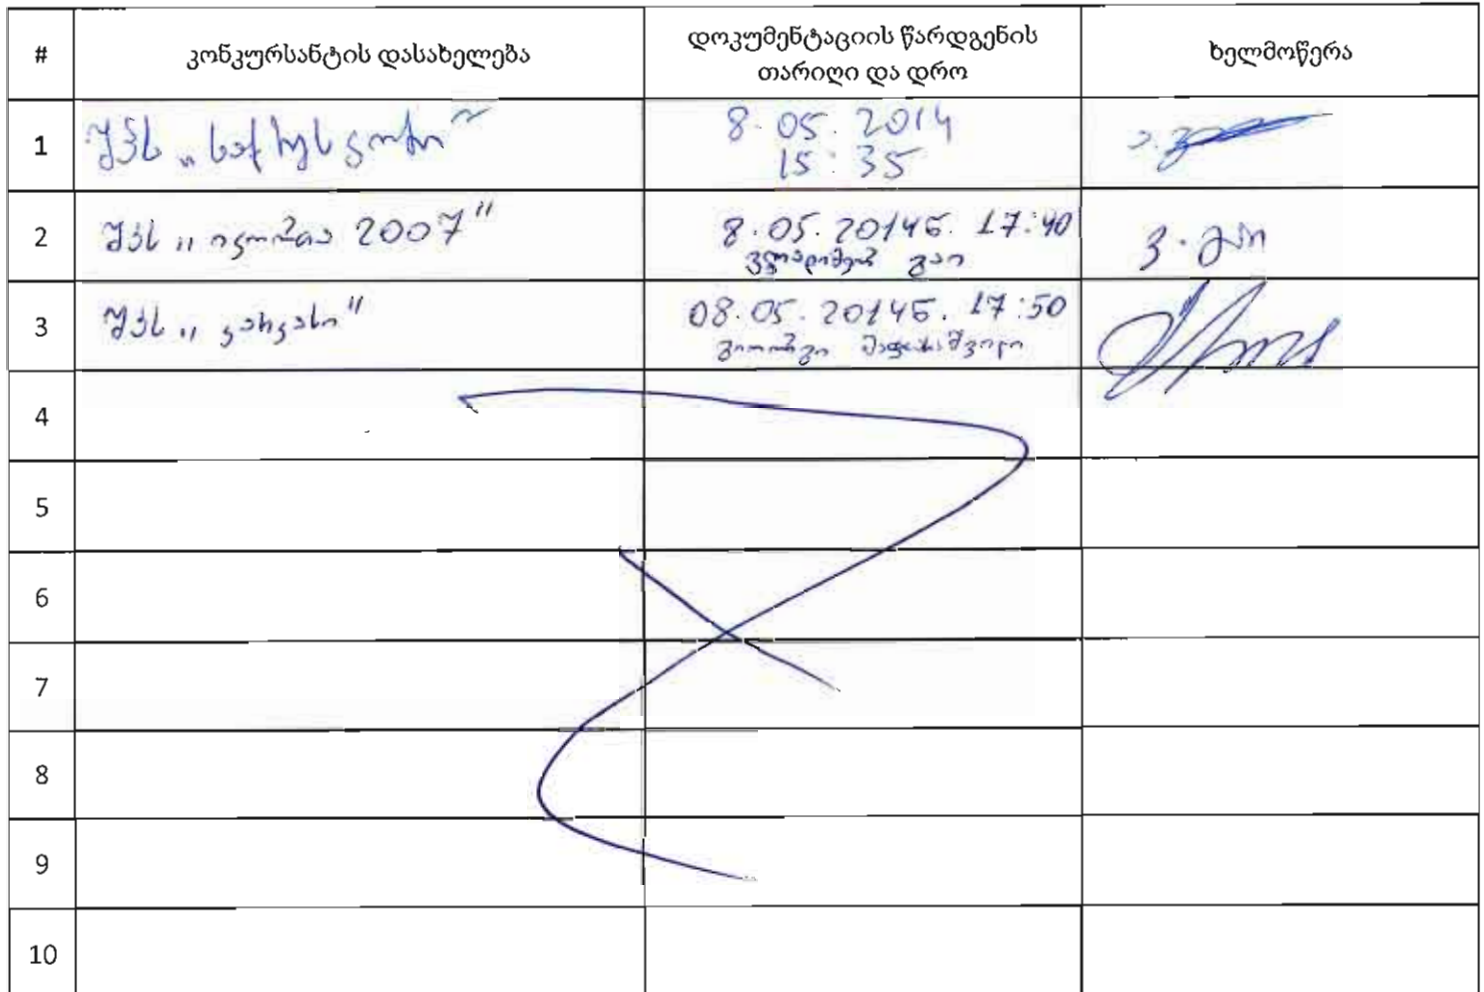 #
კონკურსანტის დასახელება
დოკუმენტაციის წარდგენის
თარიღი და დრო
ხელმოწერა
1
შპს „
8. 05. 2014
15:35
2
შპს „ იგორთა 2007"
8.05.2014წ. 17:40
ვლადიმერ გაო
3
შპს „ კარკასი"
08.05.2014წ. 17:50
გიორგი
4
5
6
7
8
9
10